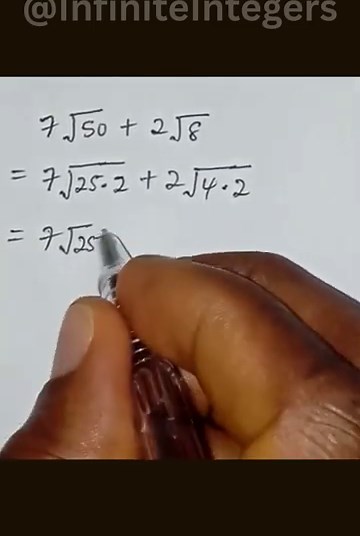 @InfiniteIntegers
7√50 + 2√8
= 7√25·2 + 2√4·2
= 7√25